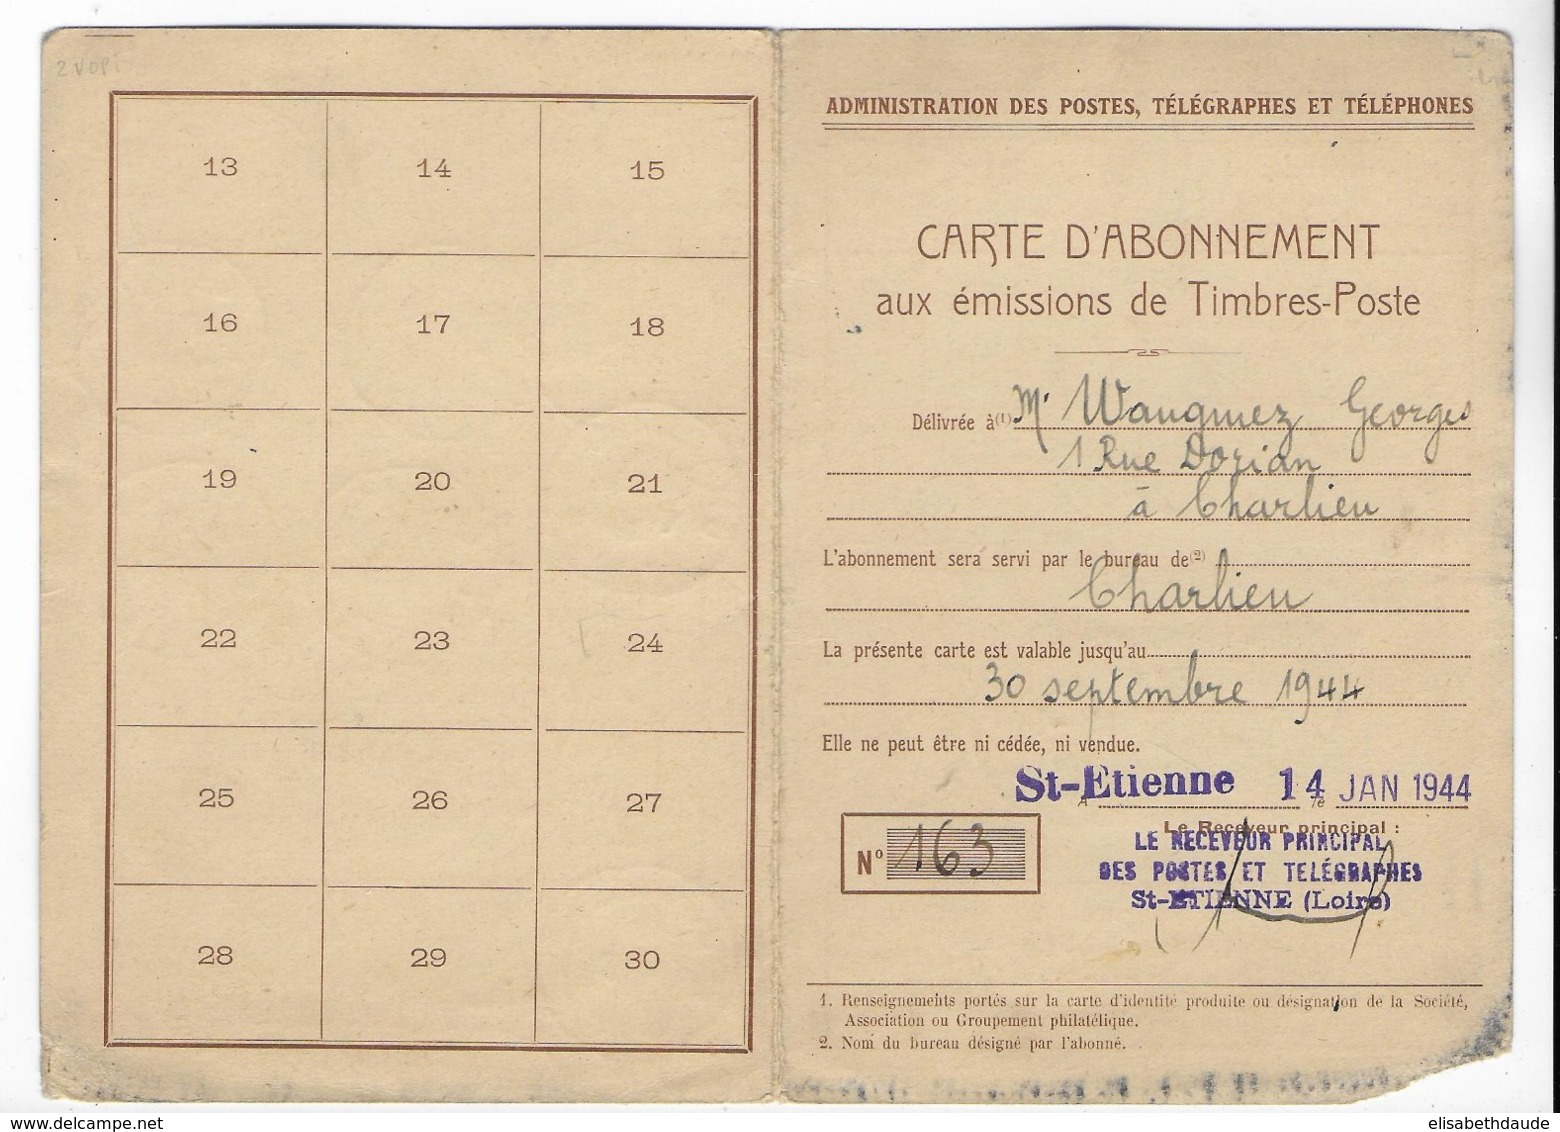 2 VOPi
13 14 15
16 17 18
19 20 21
22 23 24
25 26 27
28 29 30
ADMINISTRATION DES POSTES, TÉLÉGRAPHES ET TÉLÉPHONES
CARTE D'ABONNEMENT
aux émissions de Timbres-Poste
Délivrée à(1) Mr Wauquiez Georges
1 Rue Dorian
à Charlieu
L'abonnement sera servi par le bureau de(2)
Charlieu
La présente carte est valable jusqu'au
30 septembre 1944
Elle ne peut être ni cédée, ni vendue.
A St-Etienne le 14 JAN 1944
Le Receveur principal :
LE RECEVEUR PRINCIPAL
DES POSTES ET TELÉGRAPHES
St-ETIENNE (Loire)
No 163
1. Renseignements portés sur la carte d'identité produite ou désignation de la Société,
Association ou Groupement philatélique.
2. Nom du bureau désigné par l'abonné.
www.delcampe.net
elisabethdaude